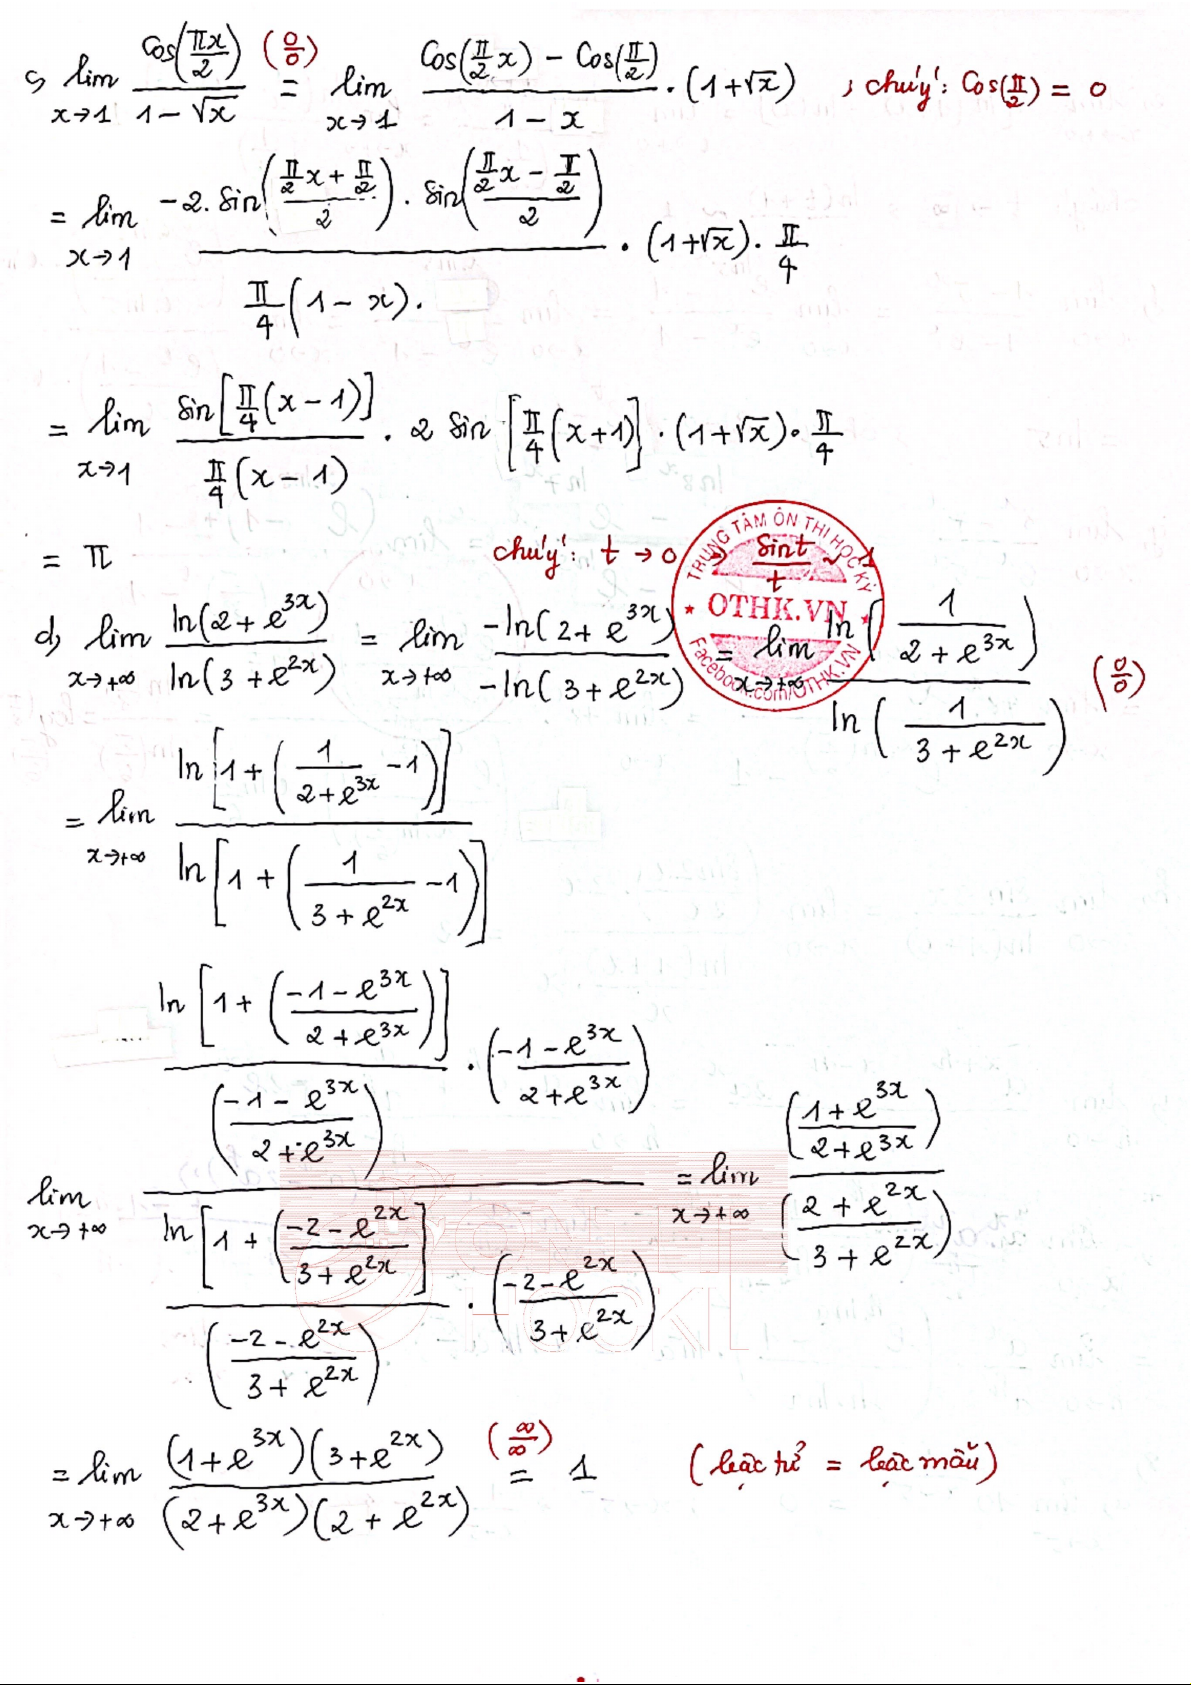 c, lim_{x→1} cos(πx/2) / (1 − √x) (0/0) = lim_{x→1} [Cos(π/2 x) − Cos(π/2)] / (1 − x) · (1+√x) ; chú ý: Cos(π/2) = 0
= lim_{x→1} [−2. Sin((π/2 x + π/2)/2) · Sin((π/2 x − π/2)/2)] / [π/4 (1 − x)] · (1+√x) · π/4
= lim_{x→1} Sin[π/4 (x − 1)] / [π/4 (x − 1)] · 2 Sin[π/4 (x+1)] · (1+√x) · π/4
= π chú ý: t → 0 → Sin t / t ~ 1
TRUNG TÂM ÔN THI HỌC KỲ
★ OTHK.VN ★
Facebook.com/OTHK.VN
d, lim_{x→+∞} ln(2 + e^{3x}) / ln(3 + e^{2x}) = lim_{x→+∞} −ln(2 + e^{3x}) / −ln(3 + e^{2x}) = lim_{x→+∞} ln(1/(2 + e^{3x})) / ln(1/(3 + e^{2x})) (0/0)
= lim_{x→+∞} ln[1 + (1/(2 + e^{3x}) − 1)] / ln[1 + (1/(3 + e^{2x}) − 1)]
lim_{x→+∞} {ln[1 + ((−1 − e^{3x})/(2 + e^{3x}))] / ((−1 − e^{3x})/(2 + e^{3x})) · ((−1 − e^{3x})/(2 + e^{3x}))} / {ln[1 + ((−2 − e^{2x})/(3 + e^{2x}))] / ((−2 − e^{2x})/(3 + e^{2x})) · ((−2 − e^{2x})/(3 + e^{2x}))} = lim_{x→+∞} ((1 + e^{3x})/(2 + e^{3x})) / ((2 + e^{2x})/(3 + e^{2x}))
= lim_{x→+∞} (1 + e^{3x})(3 + e^{2x}) / (2 + e^{3x})(2 + e^{2x}) (∞/∞) = 1 (bậc tử = bậc mẫu)